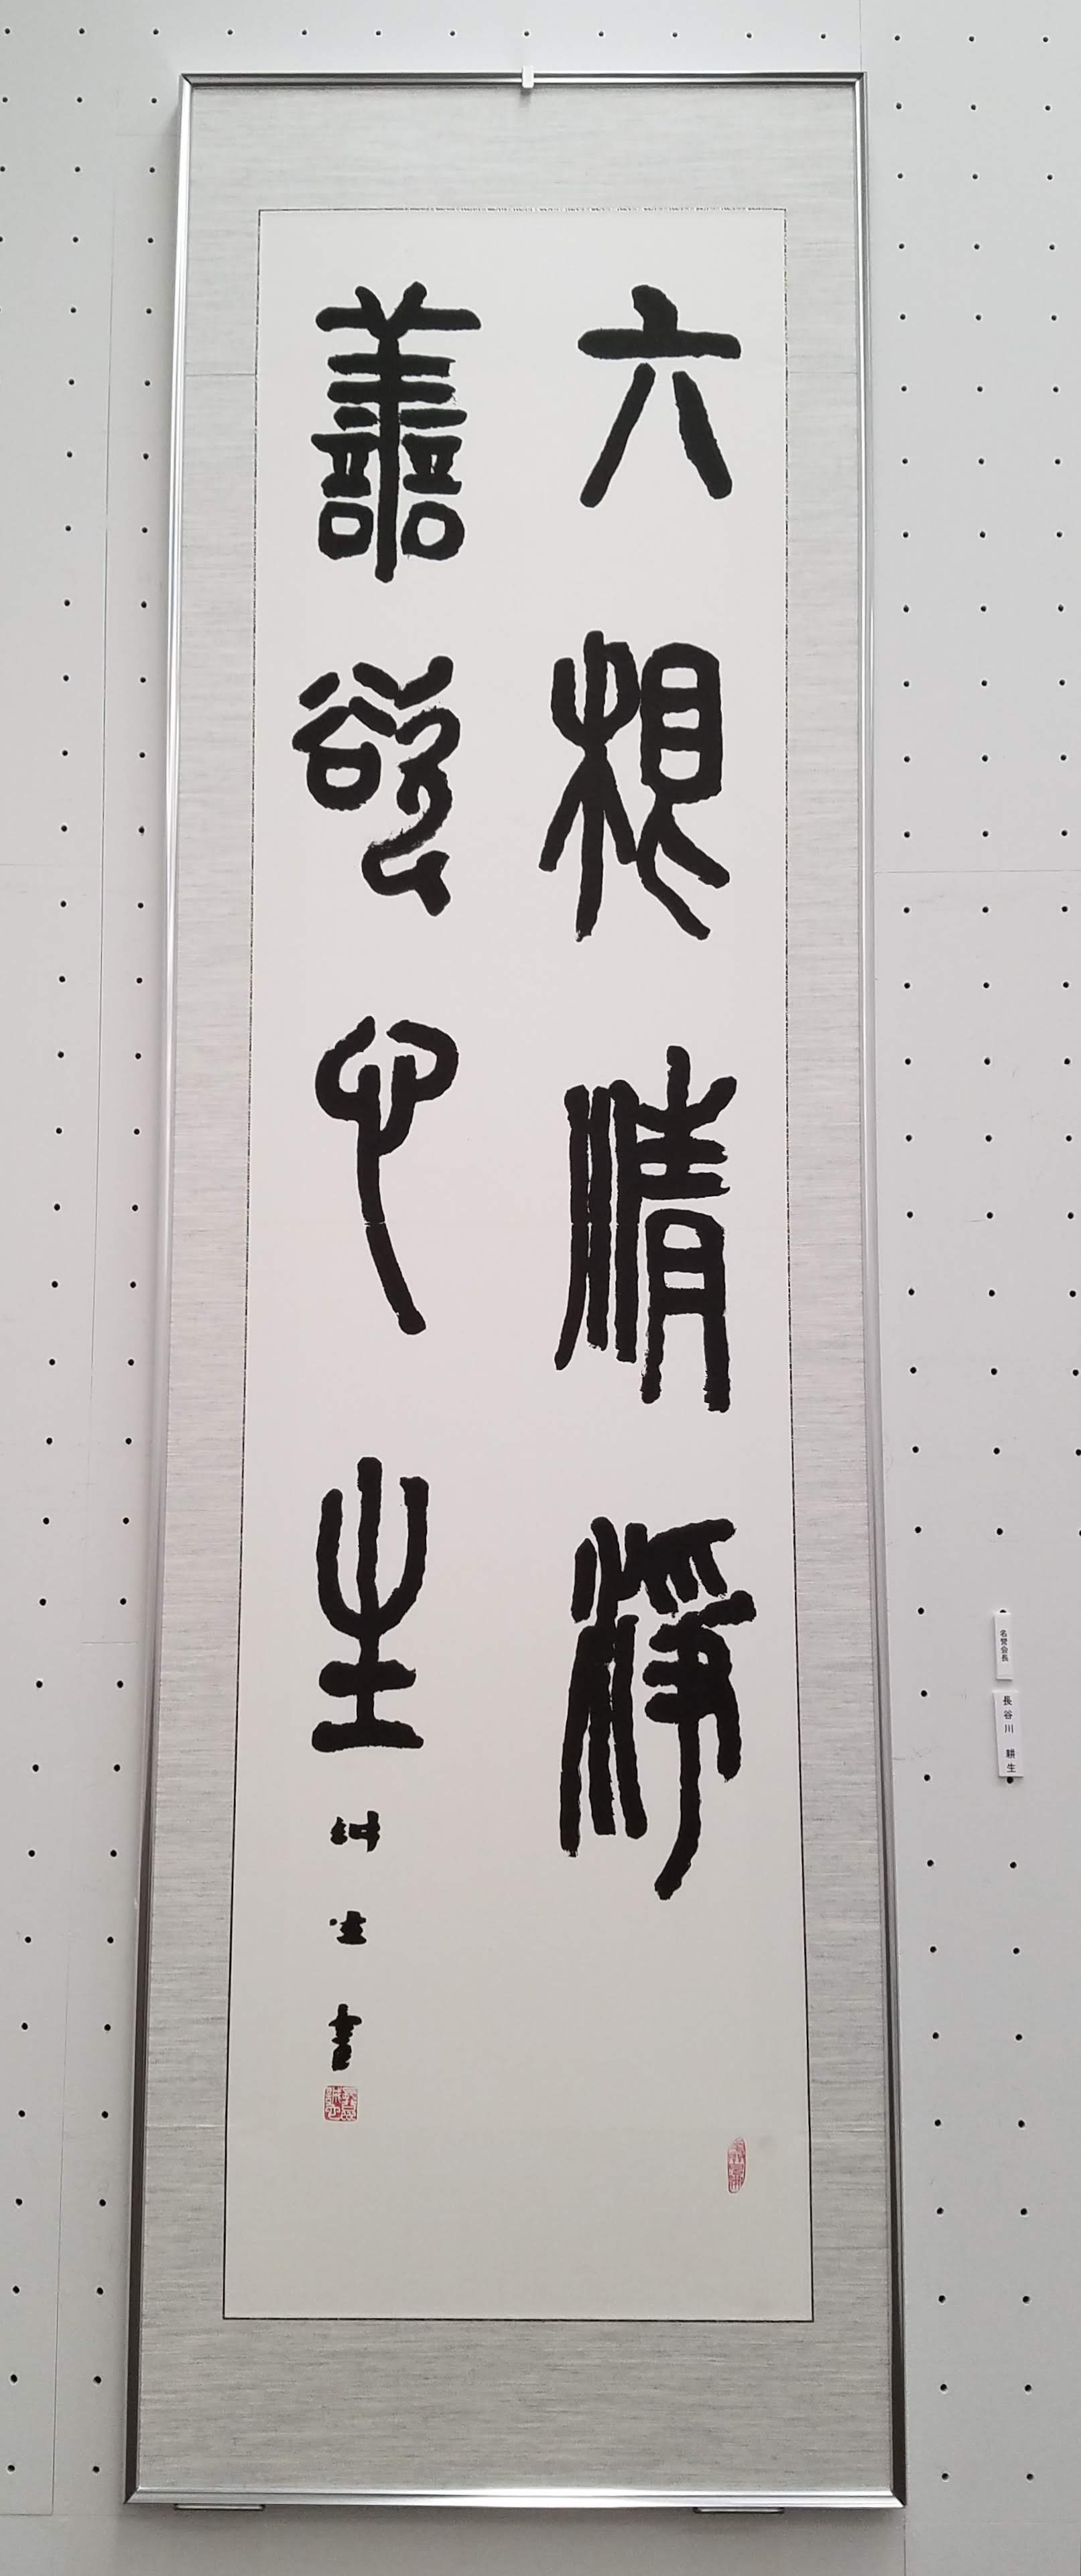 六根清淨
善欲心生
耕生書
名誉会長
長谷川 耕生